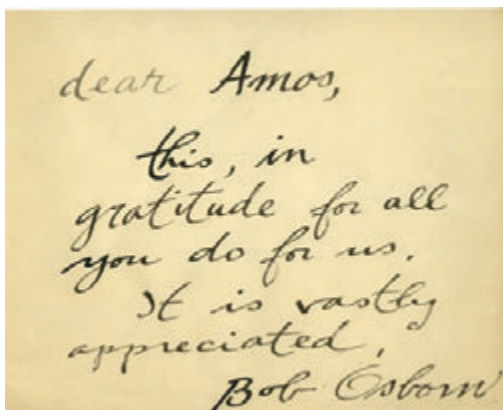 dear Amos,
this, in
gratitude for all
you do for us.
It is vastly
appreciated,
Bob Osborn